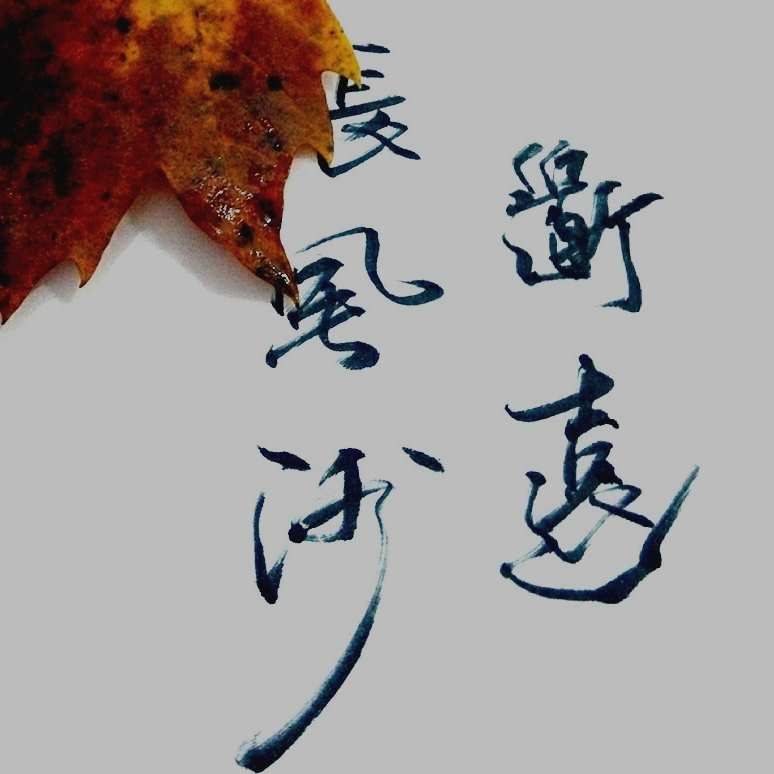 衟遠
長風沙